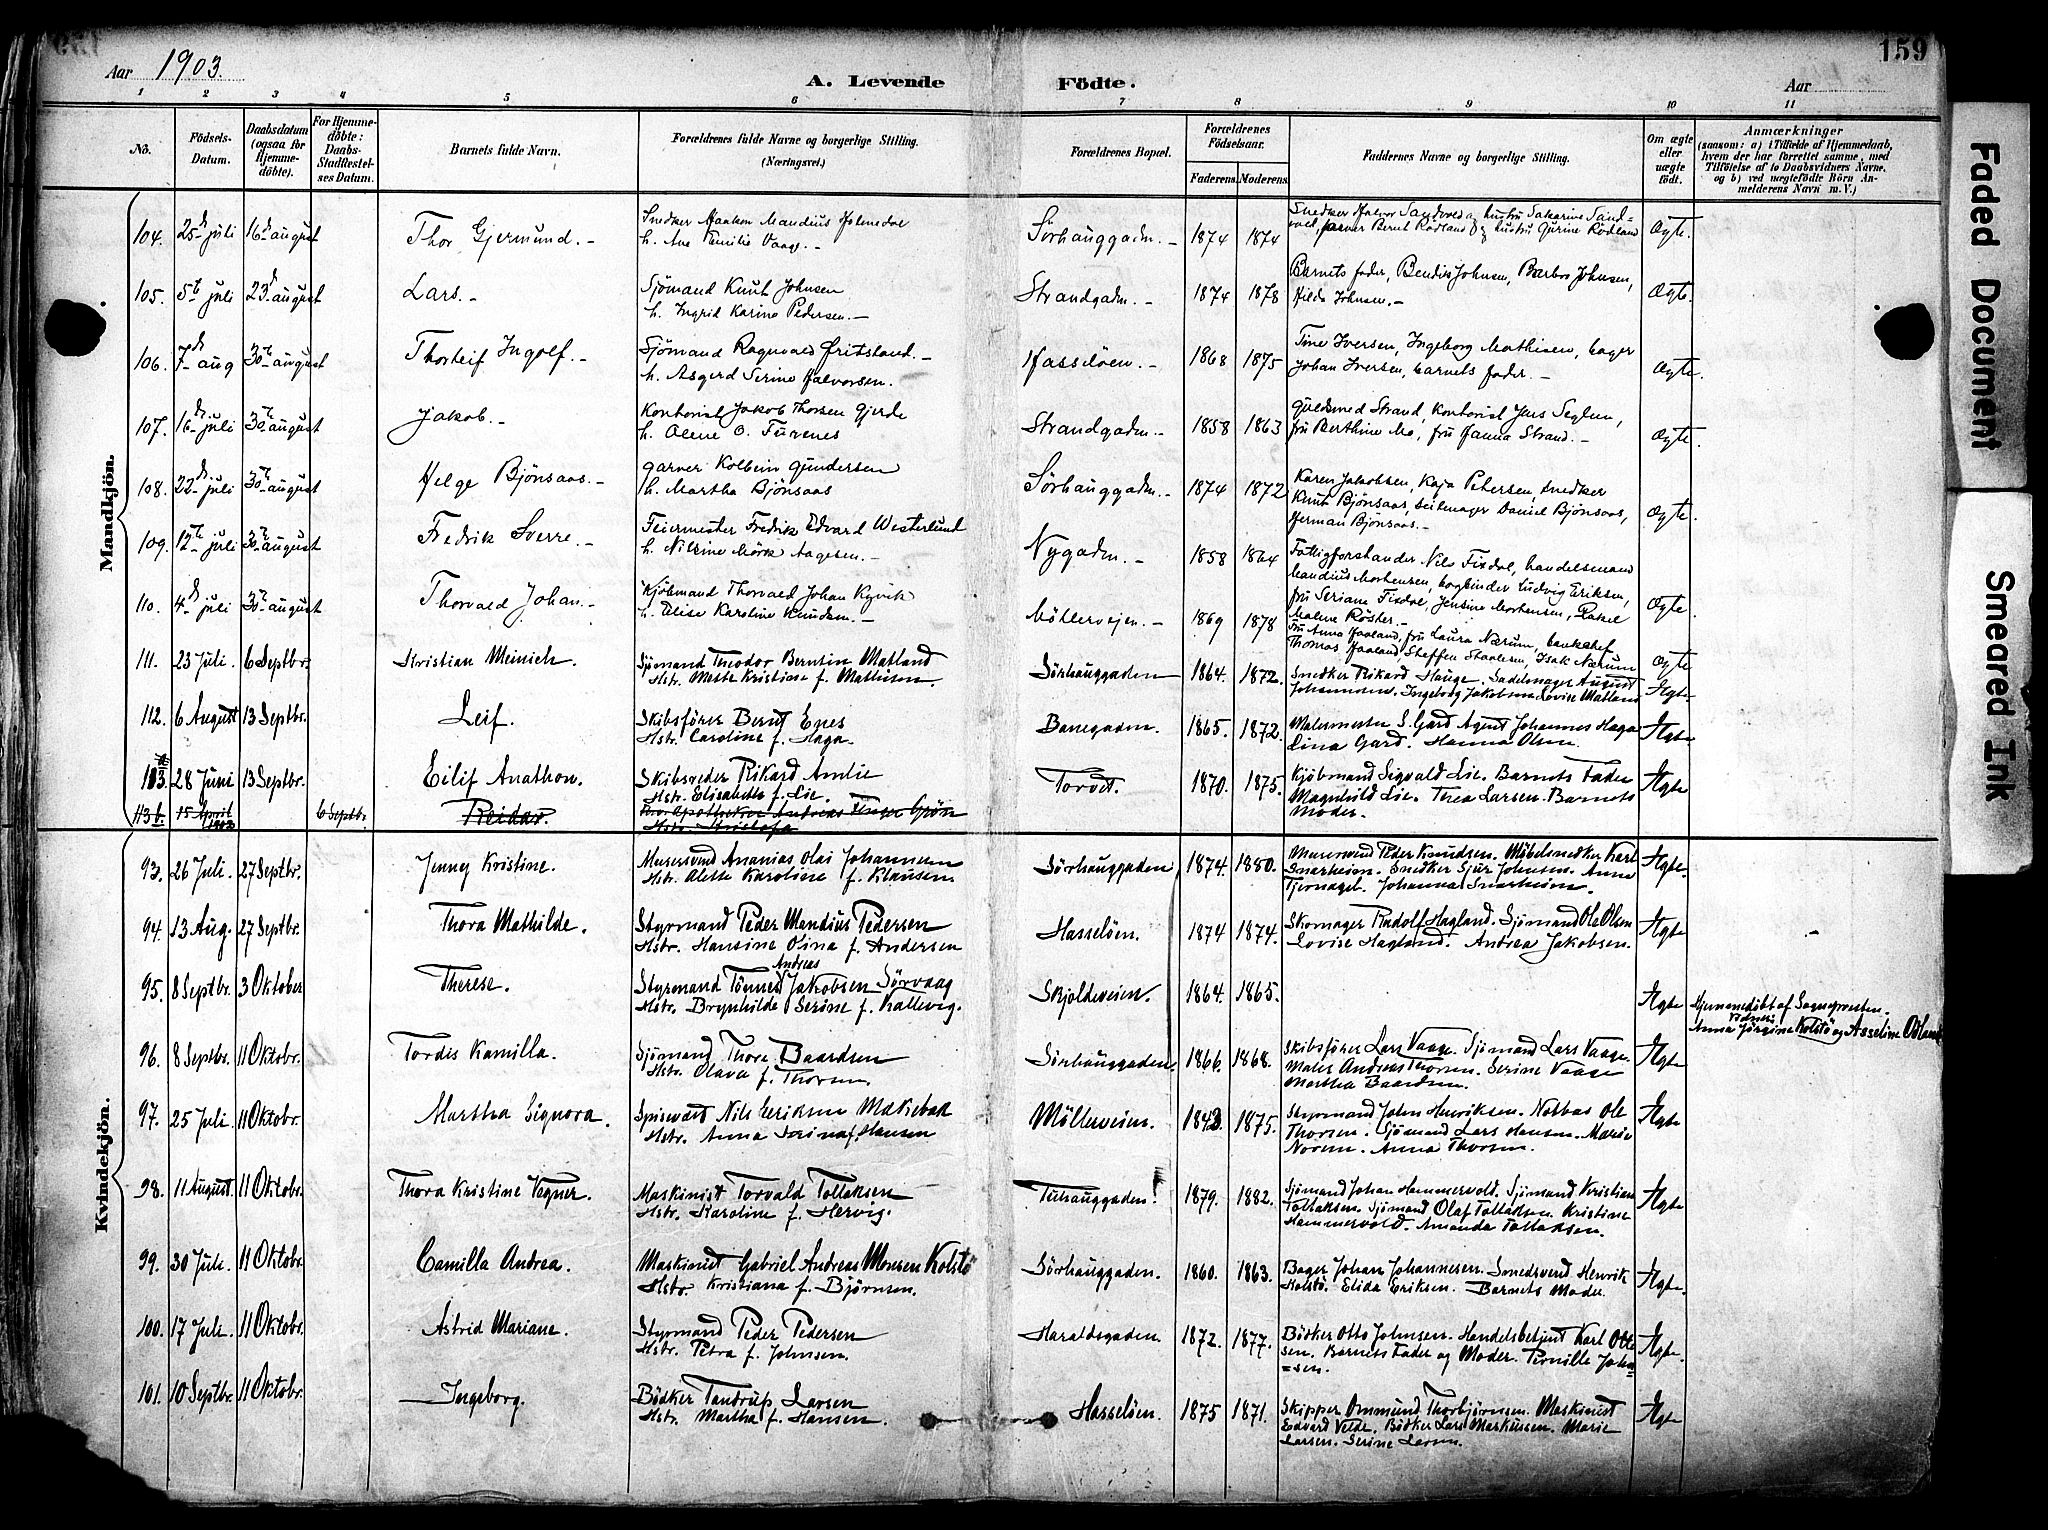 Aar 1903.
A. Levende Födte.
Aar
159
1 2 3 4 5 6 7 8 9 10 11
No.
Födsels-Datum.
Daabsdatum (ogsaa for Hjemme-döbte).
For Hjemme-döbte: Daabs-Stadfestel-ses Datum.
Barnets fulde Navn.
Forældrenes fulde Navne og borgerlige Stilling. (Næringsvei.)
Forældrenes Bopæl.
Forældrenes Födselsaar.
Faderens. Moderens.
Faddernes Navne og borgerlige Stilling.
Om ægte eller uægte födt.
Anmærkninger
(saasom: a) i Tilfælde af Hjemmedaab, hvem der har forrettet samme, med Tilföielse af to Daabsvidners Navne, og b) ved uægtefödte Börn An-melderens Navn m. V.)
Mandkjön.
104. 25 juli 16 august Thor Gjermund.
Snedker Haakon Mandius Holmedal
h. Ane Emilie Vaag.
Sörhauggadn. 1874 1874
Snedker Halvor Sandved og hustru Sakarine Sand=
ved, farver Bernt Rödland og hustru Gjerine Rödland
Ægte.
105. 5te juli 23d august Lars.
Sjömand Knut Johnsen
h. Ingrid Karine Pedersen.
Strandgadn. 1874 1878
Barnets fader, Bendix Johnsen, Barbro Johnsen,
Hilda Johnsen.
Ægte.
106. 7 aug 30te august Thorleif Ingolf.
Sjömand Ragnvald Fritsland.
h. Asgerd Serine Halvorsen.
Hasselöen. 1868 1875
Tine Iversen, Ingeborg Mathisen, bager
Johan Iversen, barnets fader.
Ægte.
107. 16 juli 30te august Jakob.
Kontorist Jakob Thorsen Gjerde
h. Olene O. Furenes
Strandgadn. 1858 1863
Guldsmed Strand, Kontorist Jens Seglem,
fru Berthine Mo, fru Hanna Strand.
Ægte.
108. 22 juli 30te august Helge Bjönsaas.
garver Kolbein Gundersen
h. Martha Bjönsaas
Sörhauggadn. 1874 1872
Karen Jakobsen, Kaja Petersen, snedker
Knut Bjönsaas, seilmager Daniel Bjönsaas,
Herman Bjönsaas.
Ægte.
109. 12te juli 30te august Fredrik Sverre.
Feiermester Fredrik Edvard Westerlund
h. Nilsine Mörk Aagesen.
Nygadn. 1858 1864
Fattigforstander Nils Fixdal, handelsmand
Mandius Mortensen, bogbinder Ludvig Eriksen,
fru Seriane Fixdal, Jensine Mortensen, Rakel
Malene Röster.
Ægte.
110. 4 juli 30te august Thorvald Johan.
Kjöbmand Thorvald Johan Kyvik
h. Elise Karoline Knudsen.
Möllervejen. 1869 1878
Fru Anna Haaland, fru Laura Nærum, bankchef
Thomas Haaland, Steffen Staalesen, Isak Nærum
Ægte
111. 23 Juli. 6 Septbr. Kristian Meinich.
Sjömand Theodor Berntin Matland
Hstr. Mette Kristine f. Mathisen.
Sörhauggaden 1864. 1872.
Snedker Rikard Hauge. Sadelmager August
Johannesen. Ingeborg Jakobsen. Lovise Matland
Ægte.
112. 6 August 13 Septbr. Leif.
Skibsförer Bernt Enes
Hstr. Caroline f. Haga.
Banegaden. 1865. 1872.
Malermester S. Gard Agent Johannes Haga
Lina Gard. Hanna Olsen.
Ægte
113. 28 Juni 13 Septbr. Eilif Anathon.
Skibsreder Rikard Amlie
Hstr. Elisabeth f. Lie.
Torvet. 1870. 1875.
Kjöbmand Sigvald Lie. Barnets Fader
Magnhild Lie. Thea Larsen. Barnets
Moder.
Ægte
113 b. 15 April 1903 6 Septbr. Reidar.
Kvindekjön.
93. 26 Juli. 27 Septbr. Jenny Kristine.
Murersvend Ananias Olai Johannesen
Hstr. Alette Karoline f. Klausen.
Sörhauggaden 1874. 1880.
Murersvend Peder Knudsen. Möbelsnedker Karl
Snarheim. Snedker Sjur Johnsen. Anna
Tjernagel. Johanna Snarheim.
Ægte.
94. 13 Aug. 27 Septbr. Thora Mathilde.
Styrmand Peder Mandius Pedersen
Hstr. Hansine Oina f. Andersen
Hasselöen. 1874 1874.
Skomager Rudolf Hagland. Sjömand Ole Olsen
Lovise Hagland. Andrea Jakobsen.
Ægte
95. 8 Septbr. 3 Oktober Therese.
Andreas
Styrmand Tönnes Jakobsen Sörvaag
Hstr. Brynhilde Serine f. Kallevig.
Skjoldeveien. 1864. 1865.
Ægte
Hjemmedöbt af Sogneprosten.
Vidner:
Anna Jörgine Kolstö og Asseline Ödland
96. 8 Septbr. 11 Oktobr. Tordis Kamilla.
Sjömand Thore Baardsen
Hstr. Olava f. Thorsen.
Sörhauggaden. 1866. 1868.
Skibsförer Lars Vaage. Sjömand Lars Vaage.
Maler Andreas Thorsen. Serine Vaage
Martha Baardsen.
Ægte
97. 25 Juli. 11 Oktobr. Martha Signora.
Spisevært Nils Eriksen Makebak
Hstr. Anna Serina f. Hansen
Mölleveien. 1843. 1875.
Styrmand John Henriksen. Notbas Ole
Thorsen. Sjömand Lars Hansen. Marie
Noren. Anna Thorsen.
Ægte
98. 11 August. 11 Oktobr. Thora Kristine Vegner.
Maskinist Torvald Tollaksen
Hstr. Karoline f. Hervig.
Tuhauggaden. 1879. 1882.
Sjömand Johan Hammervold. Sjömand Kristian
Tollaksen. Sjömand Olaf Tollaksen. Kristine
Hammervold. Amanda Tollaksen.
Ægte
99. 30 Juli. 11 Oktobr. Camilla Andrea.
Maskinist Gabriel Andreas Monsen Kolstö
Hstr. Kristiana f. Björnsen.
Sörhauggaden. 1860. 1863.
Bager Johan Johannesen. Smedsvend Henrik
Kolstö. Elida Eriksen. Barnets Moder.
Ægte.
100. 17 Juli. 11 Oktobr. Astrid Mariane.
Styrmand Peder Pedersen
Hstr. Petra f. Johnsen.
Haraldsgaden. 1872. 1877.
Bödker Otto Johnsen. Handelsbetjent Karl Otte
sen. Barnets Fader og Moder. Pernille John
=sen.
Ægte.
101. 10 Septbr. 11 Oktobr. Ingeborg.
Bödker Tandrup Larsen
Hstr. Martha f. Hansen.
Hasselöen. 1875 1871.
Skipper Ommund Thorbjörnsen. Maskinist
Edvard Velde. Bödker Lars Markussen. Marie
Larsen. Serine Larsen.
Ægte
Faded Document
Smeared Ink